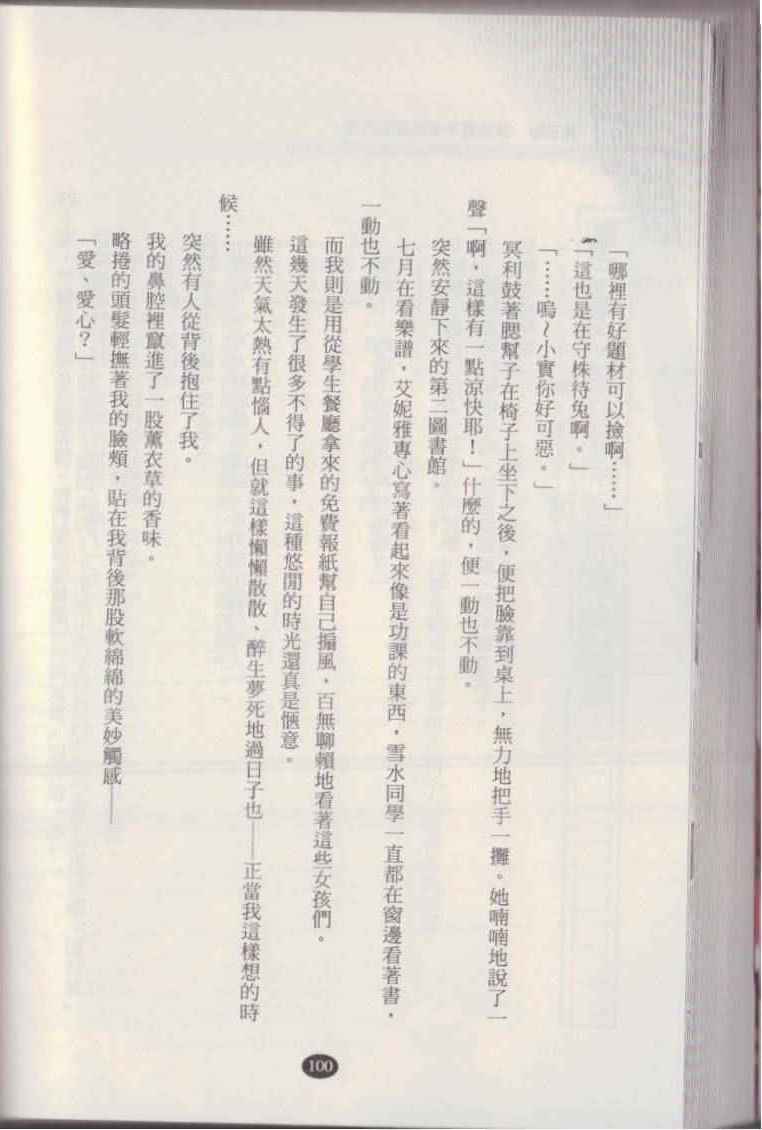 「哪裡有好題材可以撿啊……」
「這也是在守株待兔啊。」
「……嗚～小實你好可惡。」
冥利鼓著腮幫子在椅子上坐下之後，便把臉靠到桌上，無力地把手一攤。她喃喃地說了一
聲「啊，這樣有一點涼快耶！」什麼的，便一動也不動。
突然安靜下來的第二圖書館。
七月在看樂譜，艾妮雅專心寫著看起來像是功課的東西，雪水同學一直都在窗邊看著書，
一動也不動。
而我則是用從學生餐廳拿來的免費報紙幫自己搧風，百無聊賴地看著這些女孩們。
這幾天發生了很多不得了的事，這種悠閒的時光還真是愜意。
雖然天氣太熱有點惱人，但就這樣懶懶散散、醉生夢死地過日子也──正當我這樣想的時
候……
突然有人從背後抱住了我。
我的鼻腔裡竄進了一股薰衣草的香味。
略捲的頭髮輕撫著我的臉頰，貼在我背後那股軟綿綿的美妙觸感──
「愛、愛心？」
100